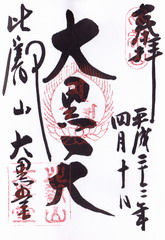 奉拝
平成二十三年
四月十日
大黒天
比叡山
大黒堂